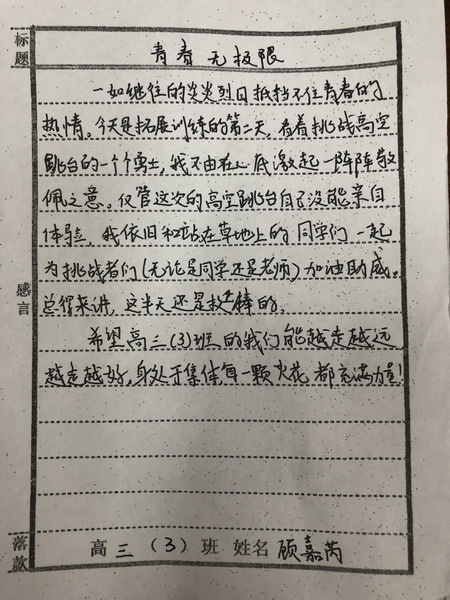 标题
青春无极限
一如继往的炎炎烈日抵挡不住青春的
热情。今天是拓展训练的第二天,看着挑战高空
跳台的一个个勇士,我不由在心底激起一阵阵敬
佩之意。仅管这次的高空跳台自己没能亲自
体验,我依旧和站在草地上的同学们一起
为挑战者们(无论是同学还是老师)加油助威。
总得来讲,这半天还是挺棒的。
希望高三(3)班的我们能越走越远
越走越好,身处于集体每一颗火花都充满力量!
感言
落款
高三(3)班 姓名 顾嘉芮